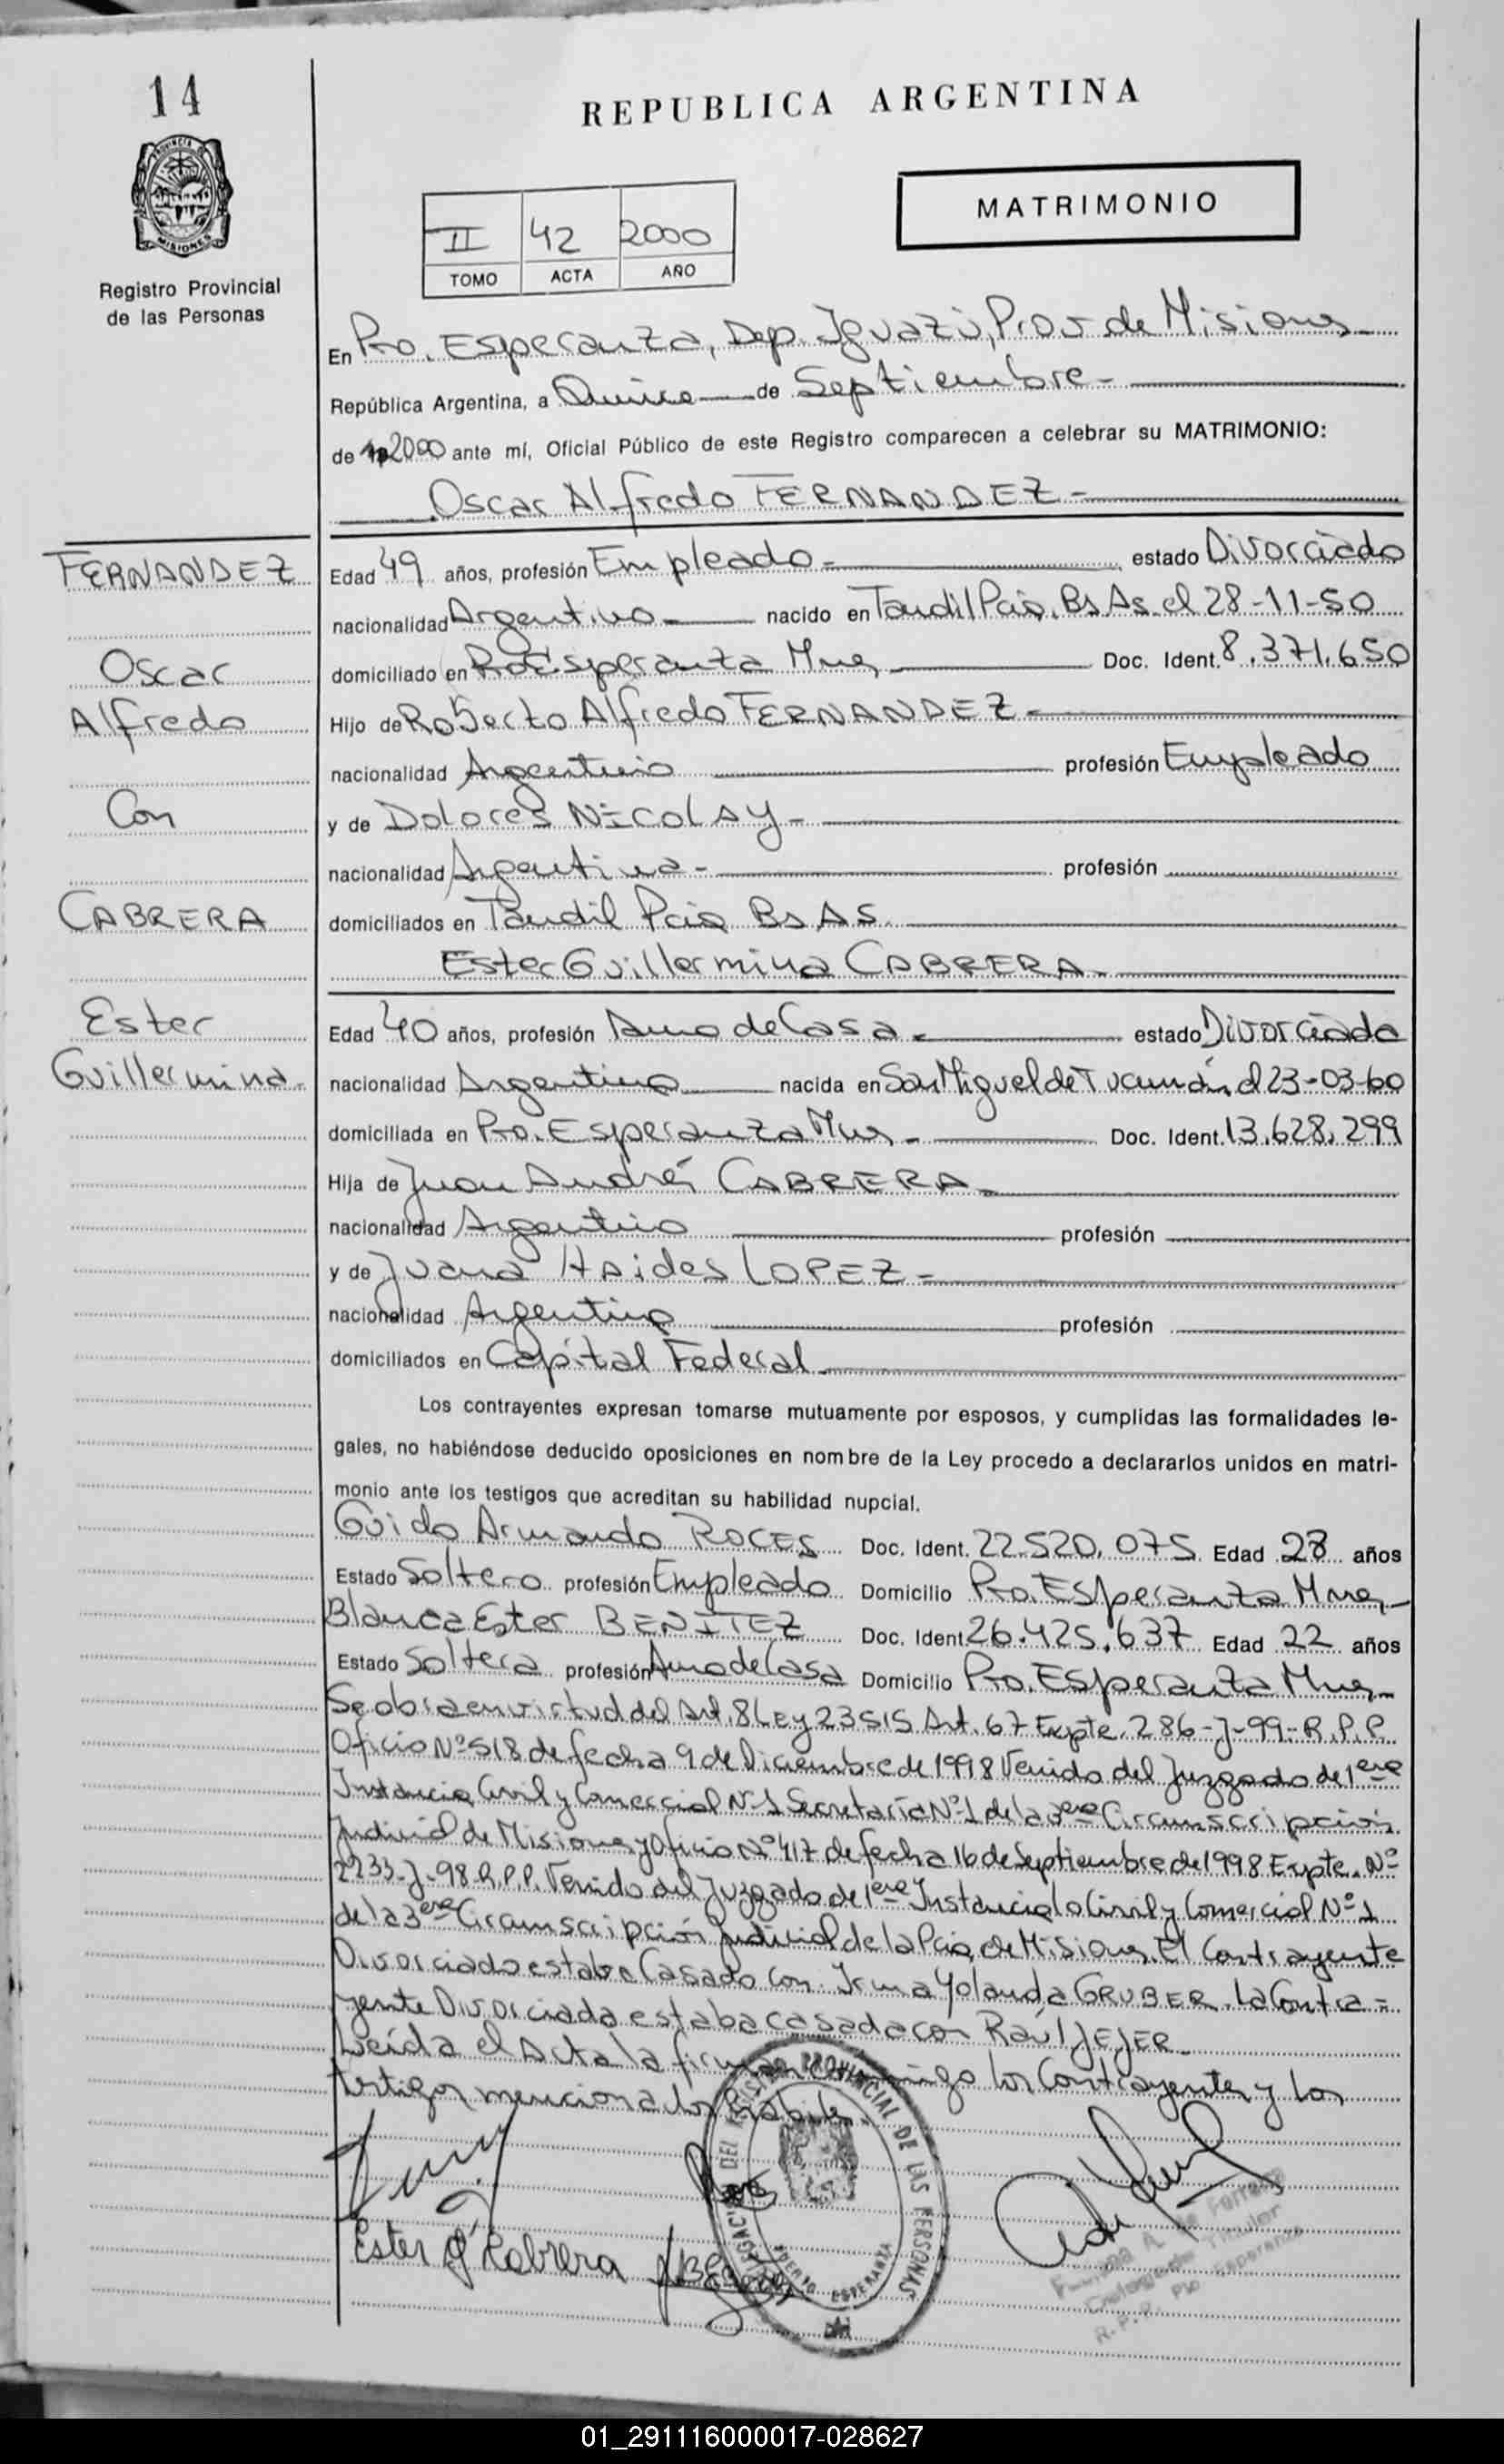 14
REPUBLICA ARGENTINA
MATRIMONIO
PROVINCIA DE
MISIONES
II 42 2000
TOMO ACTA AÑO
Registro Provincial
de las Personas
En Pto. Esperanza, Dep. Iguazú, Prov de Misiones
República Argentina, a Quince de Septiembre-
de 2000 ante mí, Oficial Público de este Registro comparecen a celebrar su MATRIMONIO:
Oscar Alfredo FERNANDEZ-
FERNANDEZ
Edad 49 años, profesión Empleado- estado Divorciado
nacionalidad Argentino- nacido en Tandil Pcia. Bs As. el 28-11-50
Oscar
domiciliado en Pto Esperanza Mnes Doc. Ident. 8.371.650
Alfredo
Hijo de Roberto Alfredo FERNANDEZ-
nacionalidad Argentino profesión Empleado
Con
y de Dolores NICOLAY-
nacionalidad Argentina- profesión
CABRERA
domiciliados en Tandil Pcia Bs As.
Ester Guillermina CABRERA-
Ester
Edad 40 años, profesión Ama de Casa- estado Divorciada
Guillermina.
nacionalidad Argentina nacida en San Miguel de Tucumán, el 23-03-60
domiciliada en Pto. Esperanza Mnes- Doc. Ident. 13.628.299
Hija de Juan Andrés CABRERA-
nacionalidad Argentino profesión
y de Juana Haides LOPEZ-
nacionalidad Argentina profesión
domiciliados en Capital Federal-
Los contrayentes expresan tomarse mutuamente por esposos, y cumplidas las formalidades le-
gales, no habiéndose deducido oposiciones en nombre de la Ley procedo a declararlos unidos en matri-
monio ante los testigos que acreditan su habilidad nupcial.
Guido Armando ROCES Doc. Ident. 22.520.075 Edad 28 años
Estado Soltero profesión Empleado Domicilio Pto. Esperanza Mnes-
Blanca Ester BENITEZ Doc. Ident. 26.425.637 Edad 22 años
Estado Soltera profesión Ama de Casa Domicilio Pto. Esperanza Mnes-
Se obra en virtud del Art. 8 Ley 23515 Art. 67 Expte. 286-J-99-R.P.P.
Oficio Nº 518 de fecha 9 de Diciembre de 1998 Venido del Juzgado de 1era
Instancia Civil y Comercial Nº 1 Secretaría Nº 1 de la 3era Circunscripción
Judicial de Misiones y Oficio Nº 417 de fecha 16 de Septiembre de 1998 Expte. Nº
2233-J-98 R.P.P. Venido del Juzgado de 1era Instancia lo Civil y Comercial Nº 1
de la 3era Circunscripción Judicial de la Pcia, de Misiones. El Contrayente
Divorciado estaba Casado con Irma Yolanda GRUBER. La Contra=
yente Divorciada estaba casada con Raúl JEJER-
Leída el Acta la firman conmigo los Contrayentes y los
testigos mencionados hábiles-
Ester G Cabrera
PROVINCIAL DE LAS PERSONAS
ESPERANZA
A. de Ferreira
Titular
R.P.P. Pto Esperanza
01_291116000017-028627